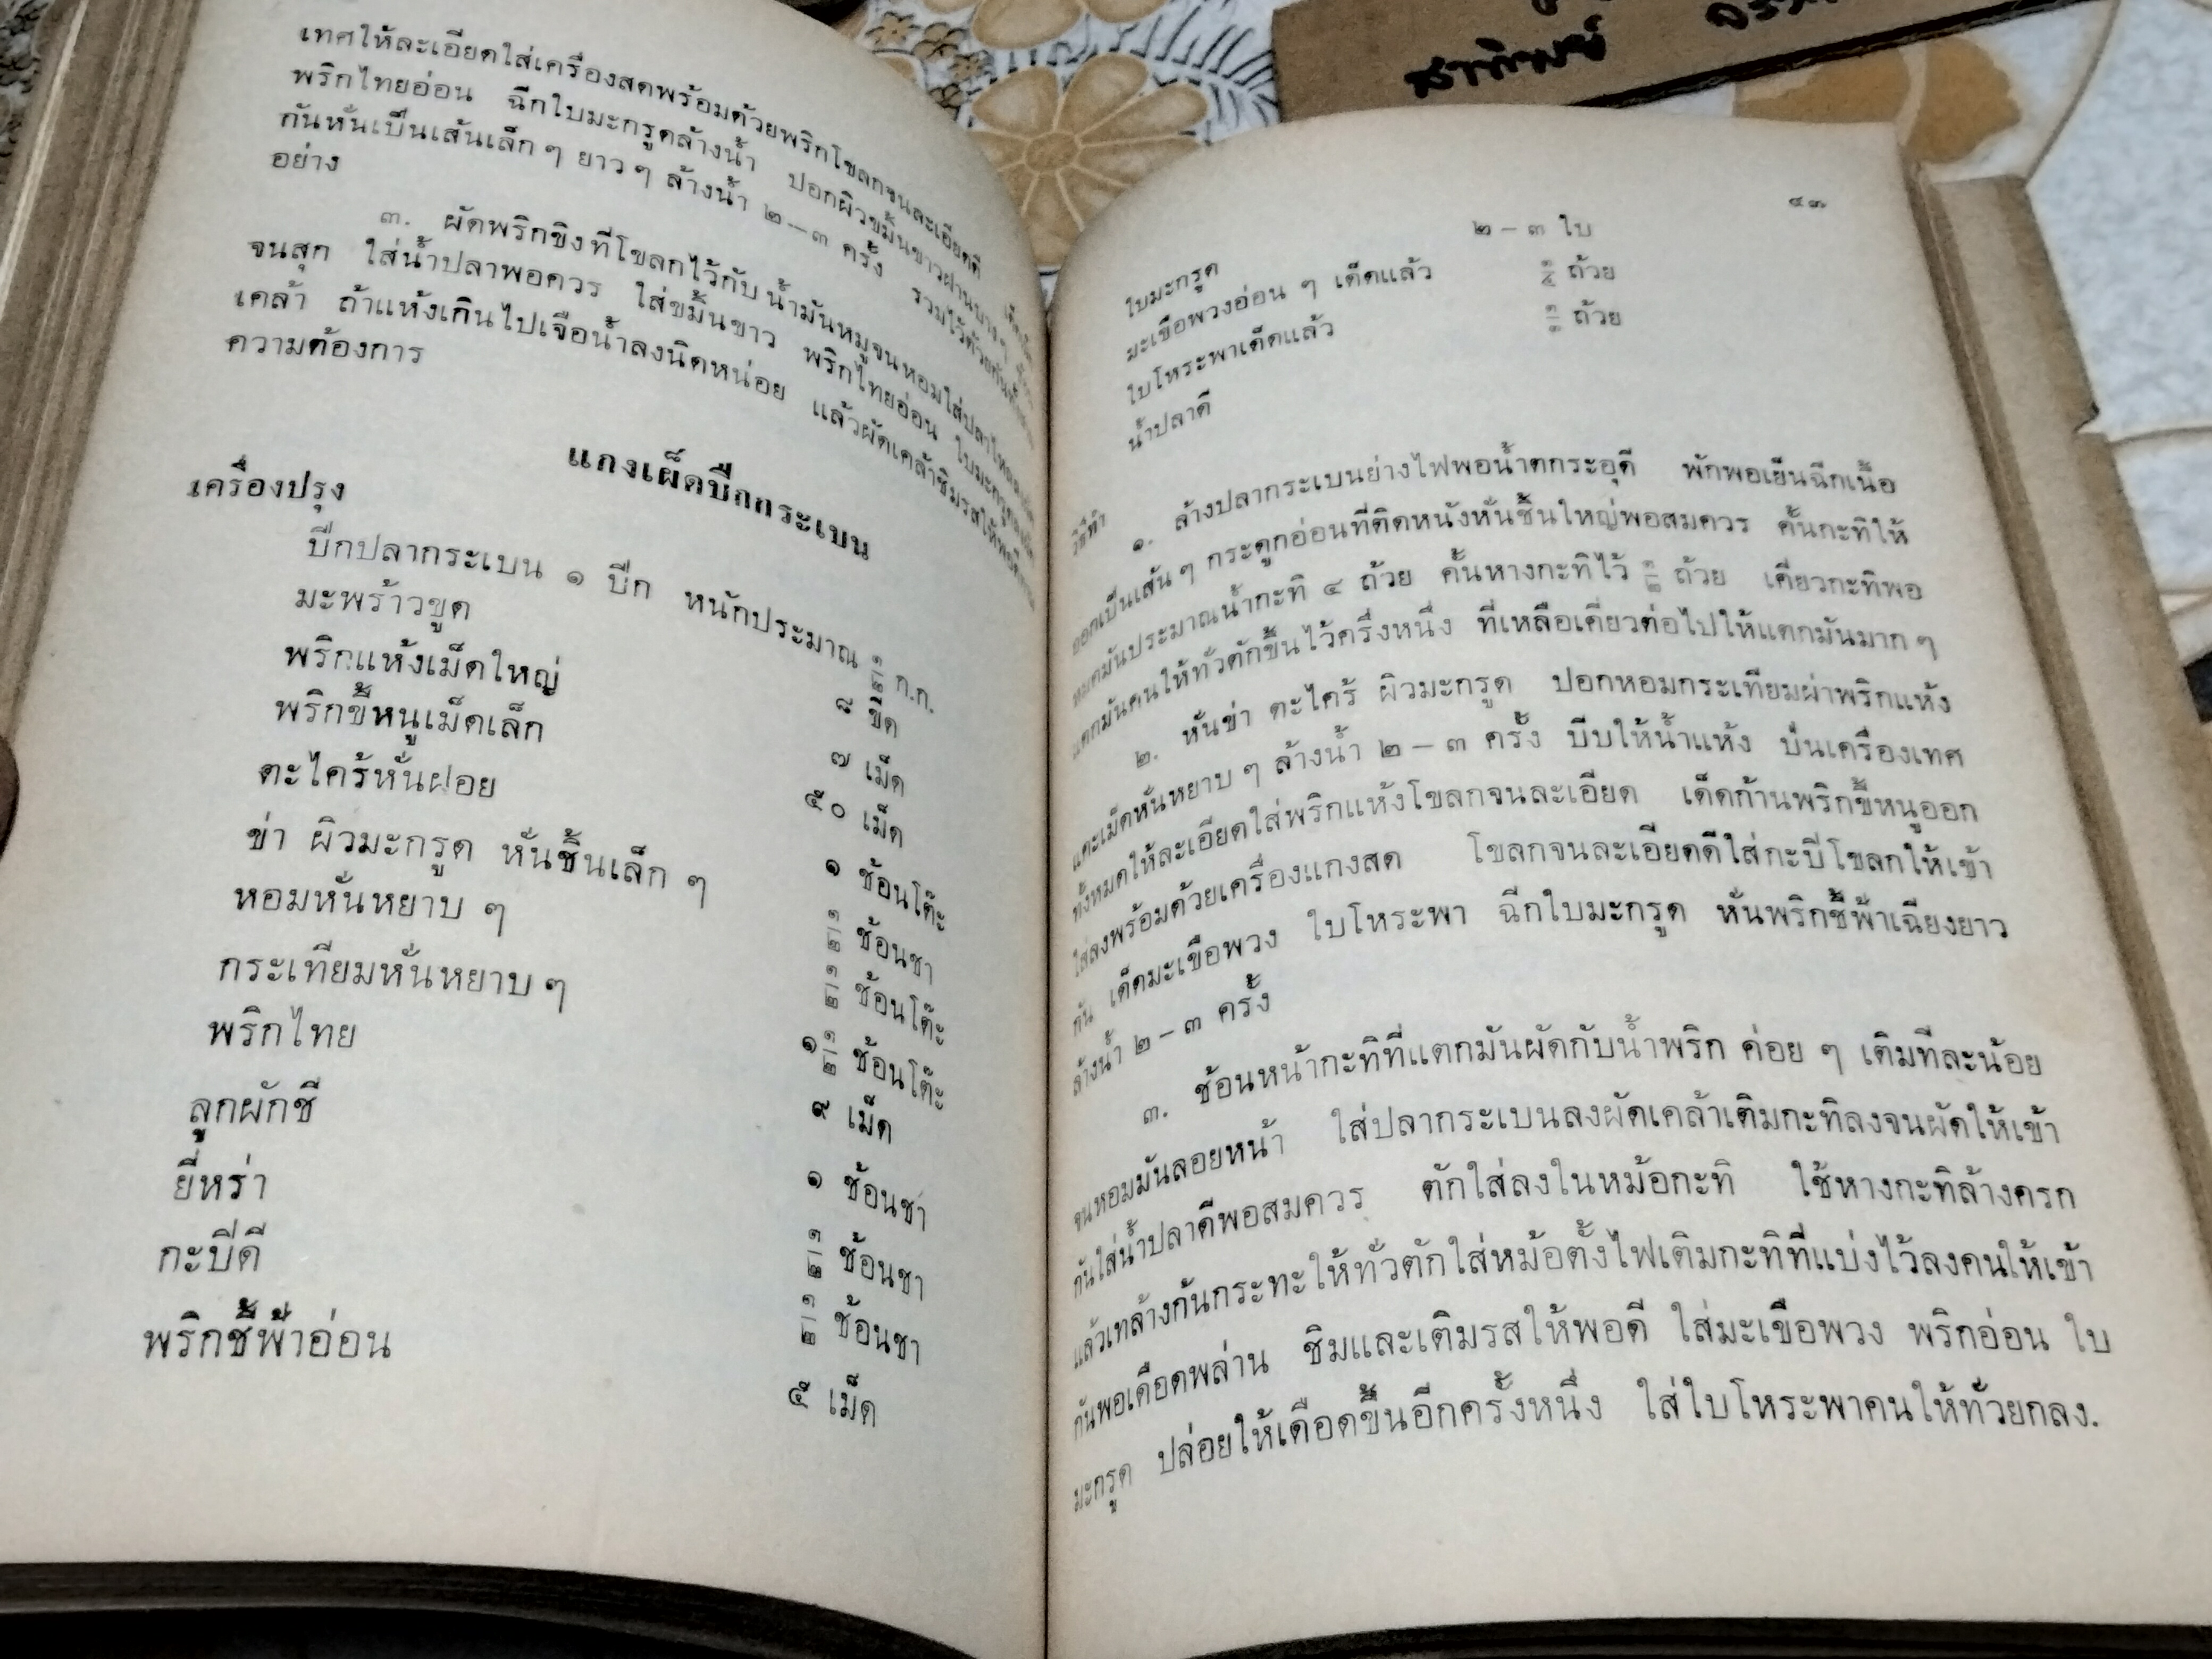 เทศให้ละเอียดใส่เครื่องสดพร้อมด้วยพริกโขลกจนละเอียดดี
พริกไทยอ่อน ฉีกใบมะกรูดล้างน้ำ ปอกผิวขมิ้นขาวฝานบาง ๆ
กันหั่นเป็นเส้นเล็ก ๆ ยาว ๆ ล้างน้ำ ๒ – ๓ ครั้ง รวมไว้ด้วยกัน
อย่าง
๓. ผัดพริกขิงที่โขลกไว้กับน้ำมันหมูจนหอมใส่ปลาไหล
จนสุก ใส่น้ำปลาพอควร ใส่ขมิ้นขาว พริกไทยอ่อน ใบมะกรูด
เคล้า ถ้าแห้งเกินไปเจือน้ำลงนิดหน่อย แล้วผัดเคล้าชิมรสให้พอดี
ความต้องการ
แกงเผ็ดปีกกระเบน
เครื่องปรุง
ปีกปลากระเบน ๑ ปีก หนักประมาณ ๑/๒ ก.ก.
มะพร้าวขูด ๘ ขีด
พริกแห้งเม็ดใหญ่ ๗ เม็ด
พริกขี้หนูเม็ดเล็ก ๕๐ เม็ด
ตะไคร้หั่นฝอย ๑ ช้อนโต๊ะ
ข่า ผิวมะกรูด หั่นชิ้นเล็ก ๆ ๑/๒ ช้อนชา
หอมหั่นหยาบ ๆ ๑/๒ ช้อนโต๊ะ
กระเทียมหั่นหยาบ ๆ ๑ ๑/๒ ช้อนโต๊ะ
พริกไทย ๙ เม็ด
ลูกผักชี ๑ ช้อนชา
ยี่หร่า ๑/๒ ช้อนชา
กะปิดี ๑/๒ ช้อนชา
พริกชี้ฟ้าอ่อน ๕ เม็ด
๔๓
ใบมะกรูด ๒ – ๓ ใบ
มะเขือพวงอ่อน ๆ เด็ดแล้ว ถ้วย
ใบโหระพาเด็ดแล้ว ถ้วย
น้ำปลาดี
วิธีทำ
๑. ล้างปลากระเบนย่างไฟพอน้ำตกระอุดี พักพอเย็นฉีกเนื้อ
ออกเป็นเส้น ๆ กระดูกอ่อนที่ติดหนังหั่นชิ้นใหญ่พอสมควร คั้นกะทิให้
หมดมันประมาณน้ำกะทิ ๔ ถ้วย คั้นหางกะทิไว้ ถ้วย เคี่ยวกะทิพอ
แตกมันคนให้ทั่วตักขึ้นไว้ครึ่งหนึ่ง ที่เหลือเคี่ยวต่อไปให้แตกมันมาก ๆ
๒. หั่นข่า ตะไคร้ ผิวมะกรูด ปอกหอมกระเทียมผ่าพริกแห้ง
แคะเม็ดหั่นหยาบ ๆ ล้างน้ำ ๒ – ๓ ครั้ง บีบให้น้ำแห้ง ป่นเครื่องเทศ
ทั้งหมดให้ละเอียดใส่พริกแห้งโขลกจนละเอียด เด็ดก้านพริกขี้หนูออก
ใส่ลงพร้อมด้วยเครื่องแกงสด โขลกจนละเอียดดีใส่กะปิโขลกให้เข้า
กัน เด็ดมะเขือพวง ใบโหระพา ฉีกใบมะกรูด หั่นพริกชี้ฟ้าเฉียงยาว
ล้างน้ำ ๒ – ๓ ครั้ง
๓. ช้อนหน้ากะทิที่แตกมันผัดกับน้ำพริก ค่อย ๆ เติมทีละน้อย
จนหอมมันลอยหน้า ใส่ปลากระเบนลงผัดเคล้าเติมกะทิลงจนผัดให้เข้า
กันใส่น้ำปลาดีพอสมควร ตักใส่ลงในหม้อกะทิ ใช้หางกะทิล้างครก
แล้วเทล้างก้นกระทะให้ทั่วตักใส่หม้อตั้งไฟเติมกะทิที่แบ่งไว้ลงคนให้เข้า
กันพอเดือดพล่าน ชิมและเติมรสให้พอดี ใส่มะเขือพวง พริกอ่อน ใบ
มะกรูด ปล่อยให้เดือดขึ้นอีกครั้งหนึ่ง ใส่ใบโหระพาคนให้ทั่วยกลง.